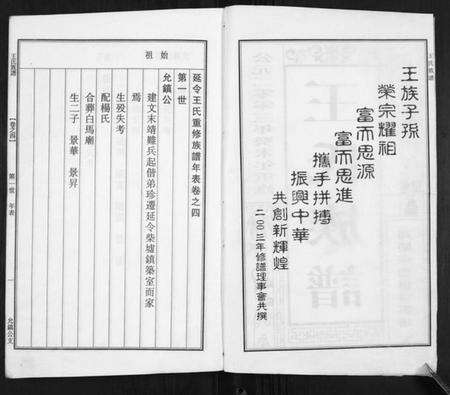 王氏族譜
王族子孫
榮宗耀祖
富而思源
富而思進
攜手拼搏
振興中華
共創新輝煌
二〇〇三年修譜理事會共撰
始祖
延令王氏重修族譜年表卷之四
第一世
允鎮公
建文末靖難兵起偕弟珍遷延令柴墟鎮築室而家
焉
生歿失考
配楊氏
合葬白馬廟
生二子 景華 景昇
王氏族譜
卷之四
第一世 年表
一
允鎮公支